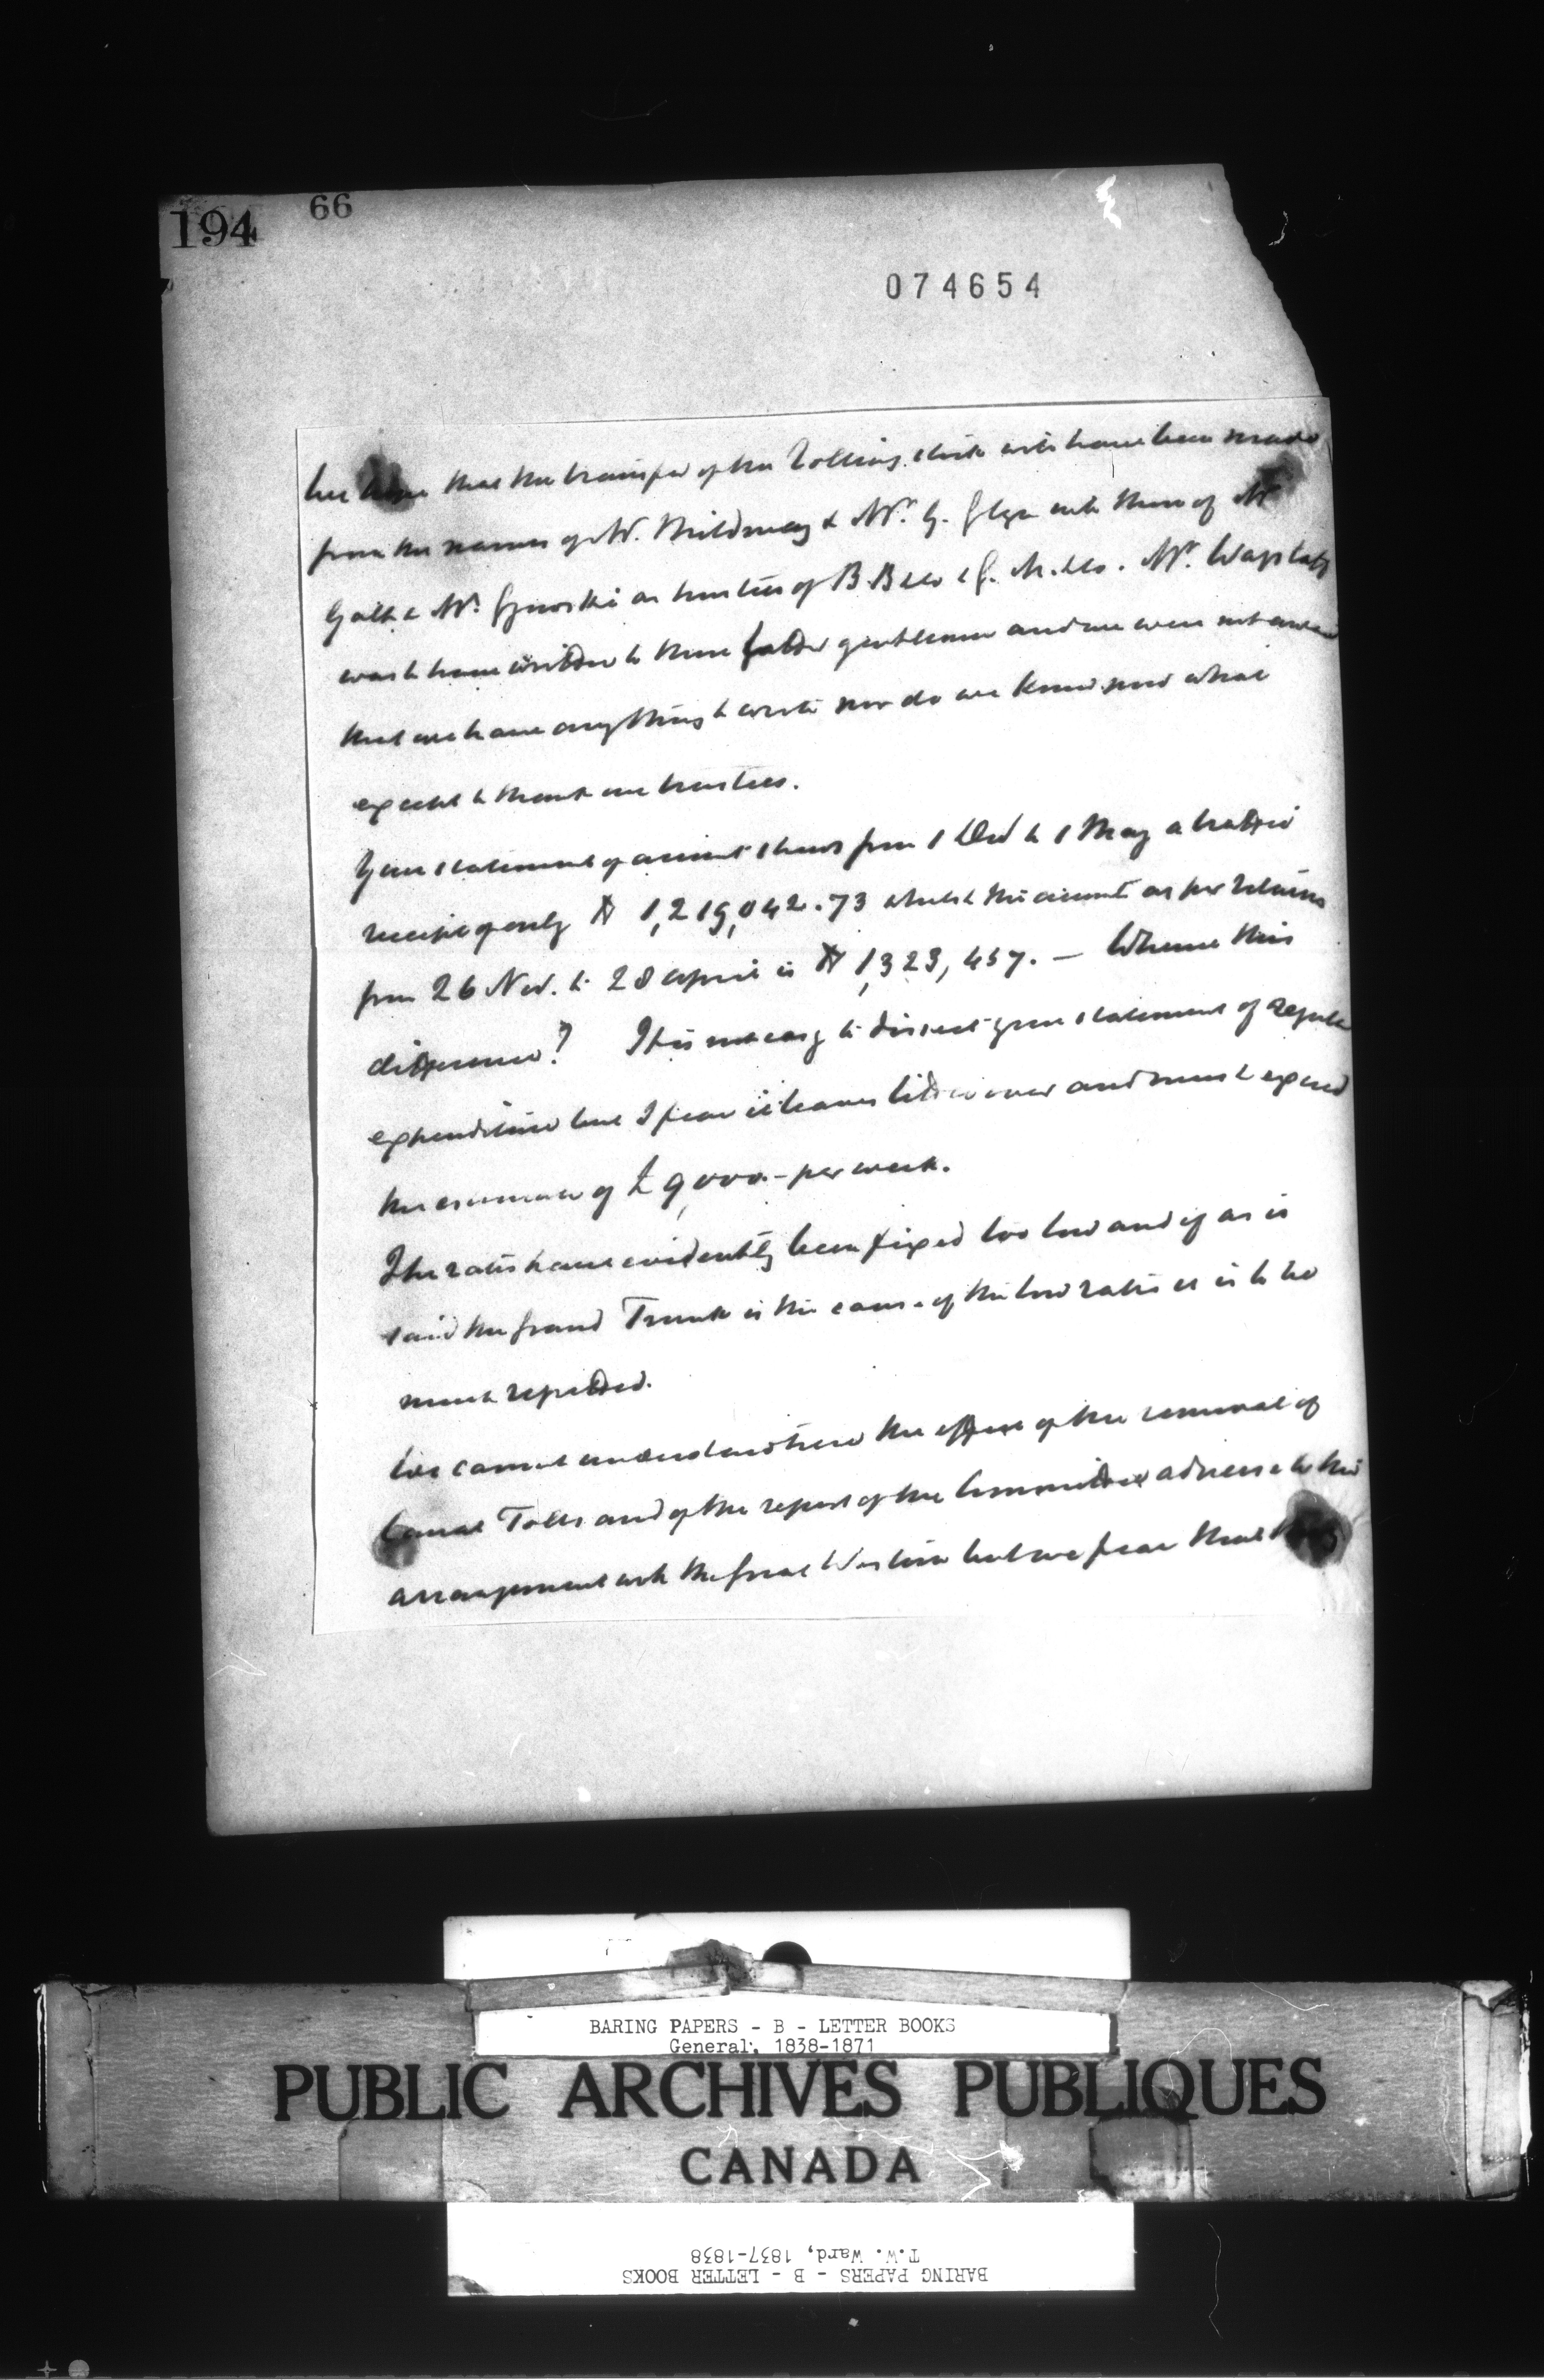 194 66
074654
We hope that the transfer of the rolling stock will have been made
from the names of H. Mildmay & Mr. G. Glyn into those of Mr
Galt & Mr. Gzowski as trustees of B.B & Co & G. M. & Co. Mr. Wagstaff
was to have written to these latter gentlemen and we were not aware
that we have anything to write nor do we know now what
except to thank our trustees.
Your statement of account shows from 1 Dec to 1 May a traffic
receipt of only $ 1,219,042.73 whilst the amount as per returns
from 26 Nov. to 28 April is $ 1,323,457. — Whence this
difference? It is not easy to dissect your statement of
expenditure but I fear it leaves little over and must exceed
the estimate of £ 9,000.- per week.
The rates have evidently been fixed too low and if as is
said the Grand Trunk is the cause of the low rates it is to be
much regretted.
We cannot understand here the effect of the removal of
Canal Tolls and of the report of the Committee adverse to the
arrangement with the Great Western but we fear that
BARING PAPERS - B - LETTER BOOKS
General, 1838-1871
PUBLIC ARCHIVES PUBLIQUES
CANADA
T.W. Ward, 1837-1838
BARING PAPERS - B - LETTER BOOKS